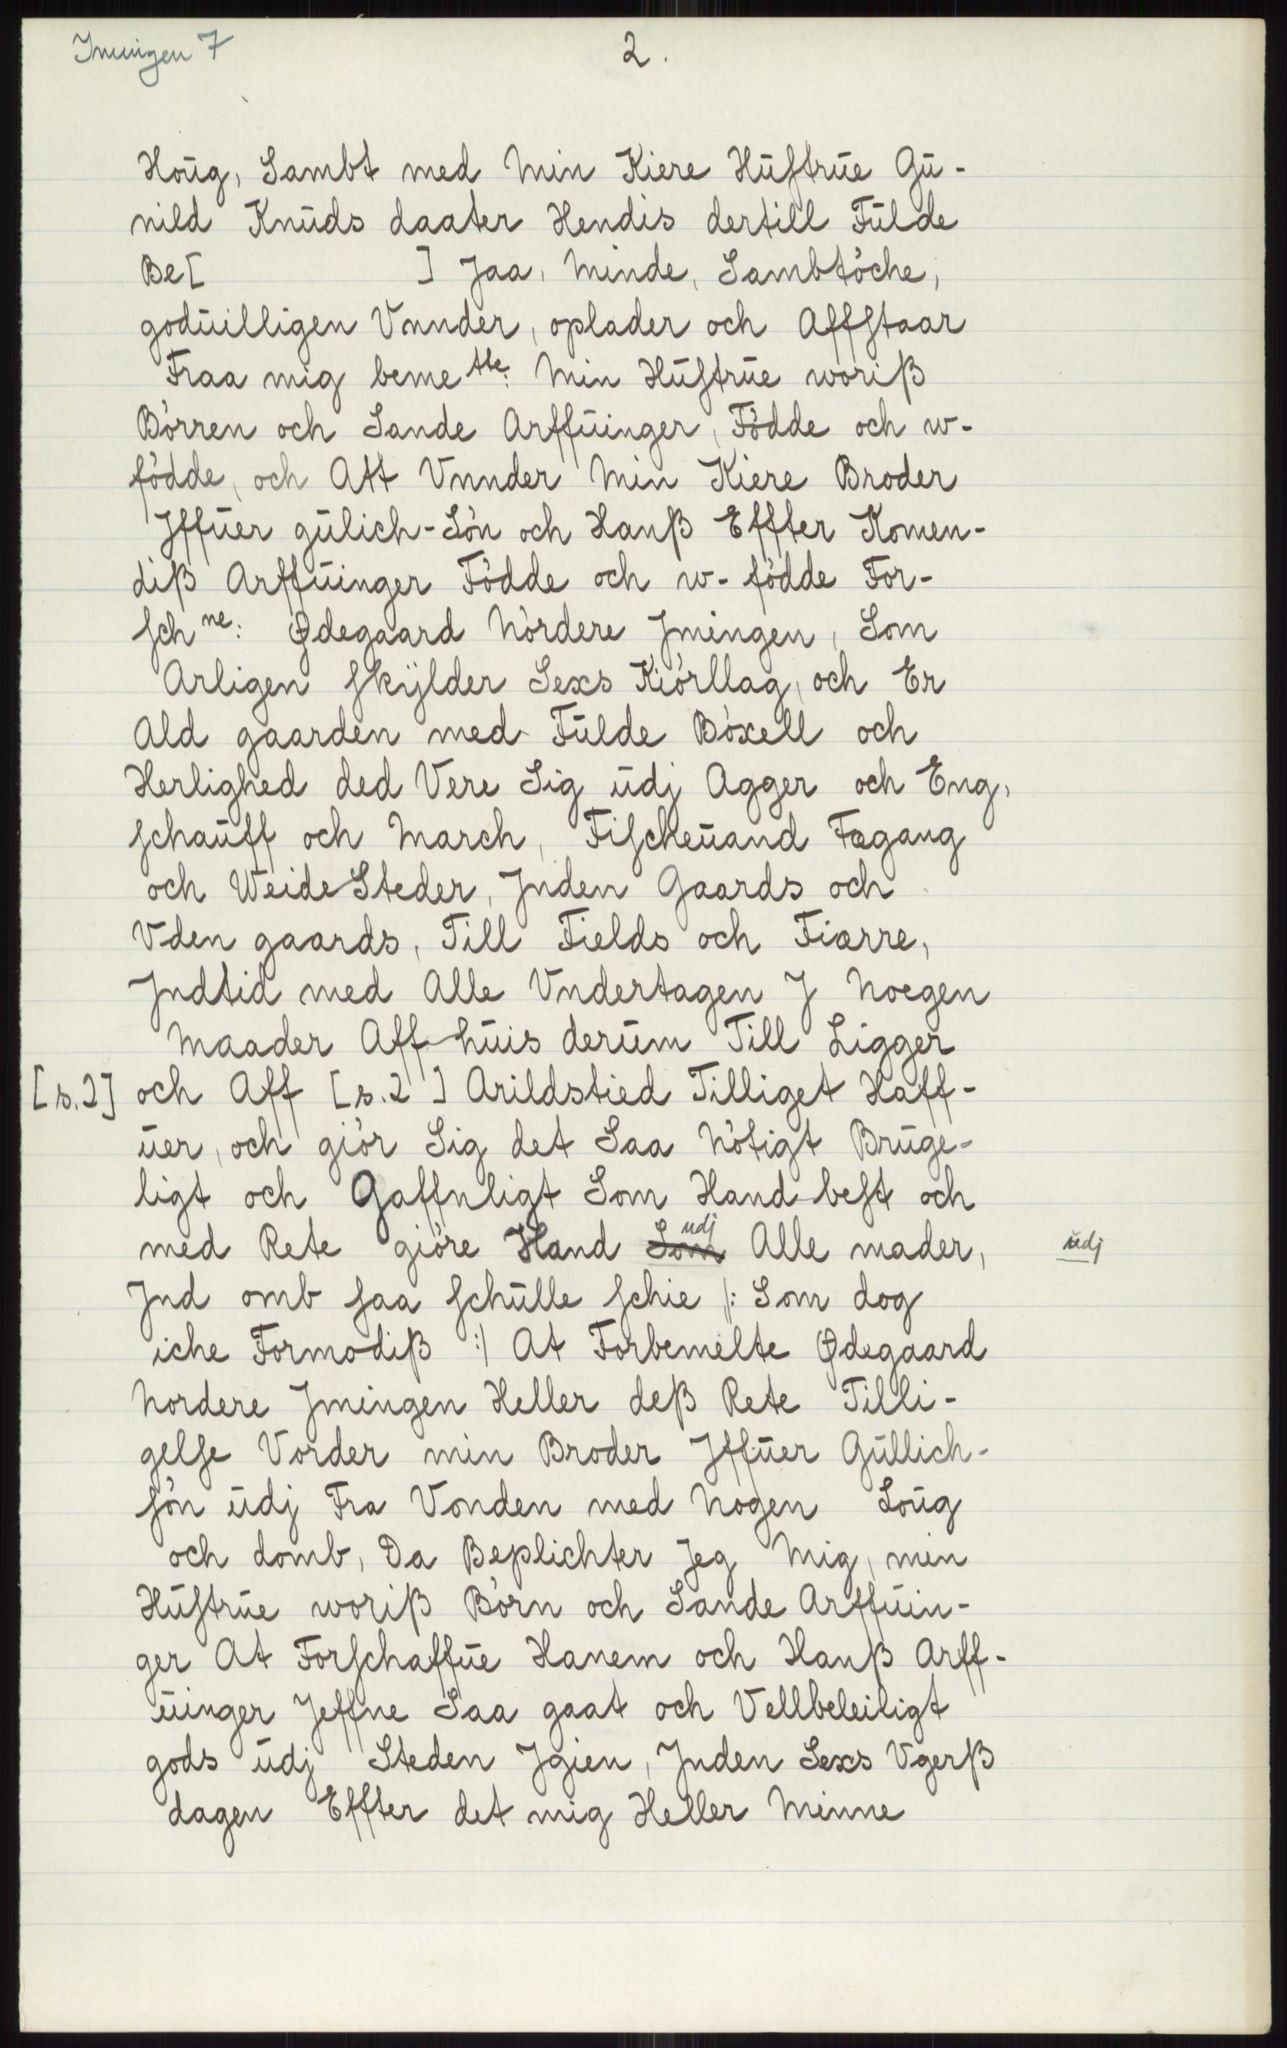 Imingen 7
2.
Hoüg, Sambt med Min Kiere Hüstrüe Gü-
nild Knüds daater Hendis dertill Fülde
Be[ ] Jaa, Minde, Sambtöche,
godüilligen Vnnder, oplader och Affstaar
Fraa mig beme tte: Min Hüstrüe woriß
Börren och Sande Arffüinger, Födde och w-
födde, och Att Vnnder Min Kiere Broder
Jffüer gülich-Sön och Hanß Effter Komen-
diß Arffüinger Födde och w-födde For-
sch ne: Ødegaard Nördere Jmingen, Som
Arligen skÿlder Sexs Kiörllag, och Er
Ald gaarden med Fülde Böxell och
Herlighed ded Vere Sig üdj Agger och Eng,
schaüff och March, Fischeüand Fægang
och Weide Steder, Jnden Gaards och
Vden gaards, Till Fields och Fiærre,
Jndtid med Alle Vndertagen J Noegen
Maader Aff hüis derüm Till Ligger
[s.2] och Aff [s.2] Arildstied Tilliget Haff-
üer, och giör Sig det Saa Nötigt Brüge-
ligt och Gaffnligt Som Hand best och
med Rete giöre Hand Som udj Alle mader, üdj
Jnd omb saa schülle schie /: Som dog
iche Formodiß :/ At Forbemelte Ødegaard
Nordere Jmingen Heller deß Rete Tilli-
gelse Vorder min Broder Jffüer Güllich-
sön üdj Fra Vonden med Nogen Loüg
och domb, Da Beplichter Jeg Mig, min
Hüstrüe woriß Börn och Sande Arffüin-
ger At Forschaffüe Hanem och Hanß Arff-
üinger Jeffne Saa gaat och Vellbeleiligt
gods üdj Steden Jgien, Jnden Sexs Vgerß
dagen Effter det mig Heller Minne